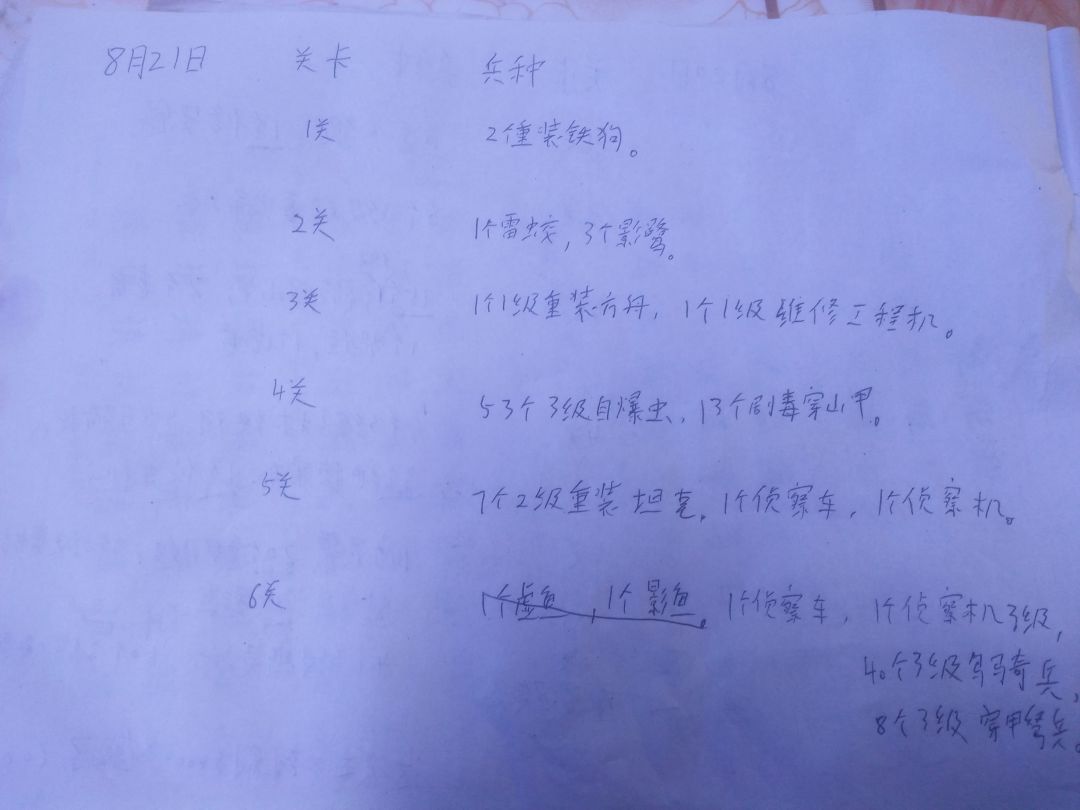 8月21日 关卡 兵种
1关 2个重装铁狗。
2关 1个雷蛟，3个影鹭。
3关 1个1级重装方舟，1个1级维修工程机。
4关 53个3级自爆虫，13个剧毒穿山甲。
5关 7个2级重装坦克，1个侦察车，1个侦察机。
6关 1个虚鱼，1个影鱼。1个侦察车，1个侦察机3级，
40个3级乌骑兵，
8个3级穿甲弩兵。